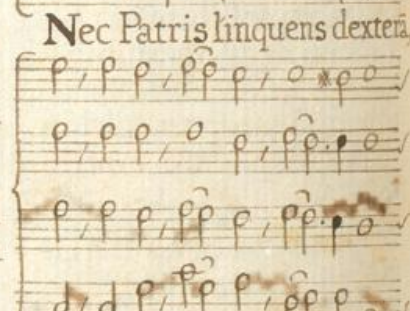 Nec Patris linquens dexterā